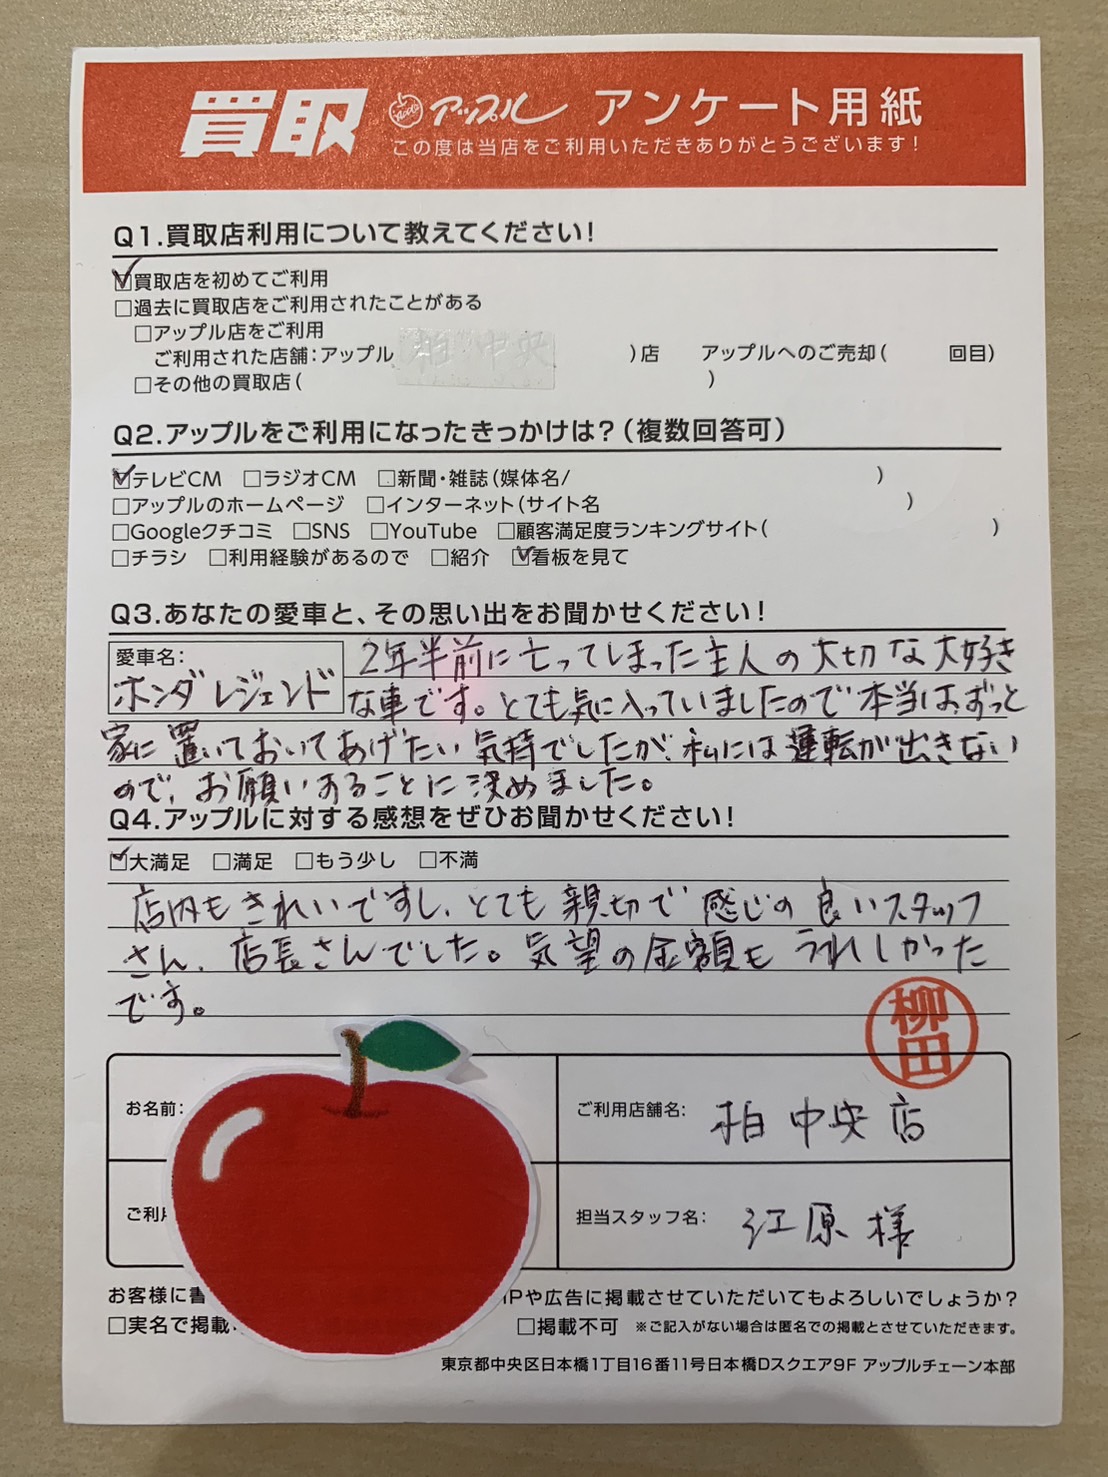 買取 アップル アンケート用紙
この度は当店をご利用いただきありがとうございます!
Q1.買取店利用について教えてください!
☑買取店を初めてご利用
□過去に買取店をご利用されたことがある
□アップル店をご利用
ご利用された店舗:アップル 柏中央 )店 アップルへのご売却( 回目)
□その他の買取店( )
Q2.アップルをご利用になったきっかけは?(複数回答可)
☑テレビCM □ラジオCM □新聞・雑誌(媒体名/ )
□アップルのホームページ □インターネット(サイト名 )
□Googleクチコミ □SNS □YouTube □顧客満足度ランキングサイト( )
□チラシ □利用経験があるので □紹介 ☑看板を見て
Q3.あなたの愛車と、その思い出をお聞かせください!
愛車名:
ホンダレジェンド
2年半前に亡ってしまった主人の大切な大好き
な車です。とても気に入っていましたので本当は、ずっと
家に置いておいてあげたい気持でしたが、私には運転が出きない
ので、お願いすることに決めました。
Q4.アップルに対する感想をぜひお聞かせください!
☑大満足 □満足 □もう少し □不満
店内もきれいですし、とても親切で感じの良いスタッフ
さん、店長さんでした。気望の金額もうれしかった
です。
柳田
お名前:
ご利用店舗名: 柏中央店
ご利
担当スタッフ名: 江原様
お客様に書 HPや広告に掲載させていただいてもよろしいでしょうか?
□実名で掲載 □掲載不可 ※ご記入がない場合は匿名での掲載とさせていただきます。
東京都中央区日本橋1丁目16番11号日本橋Dスクエア9F アップルチェーン本部